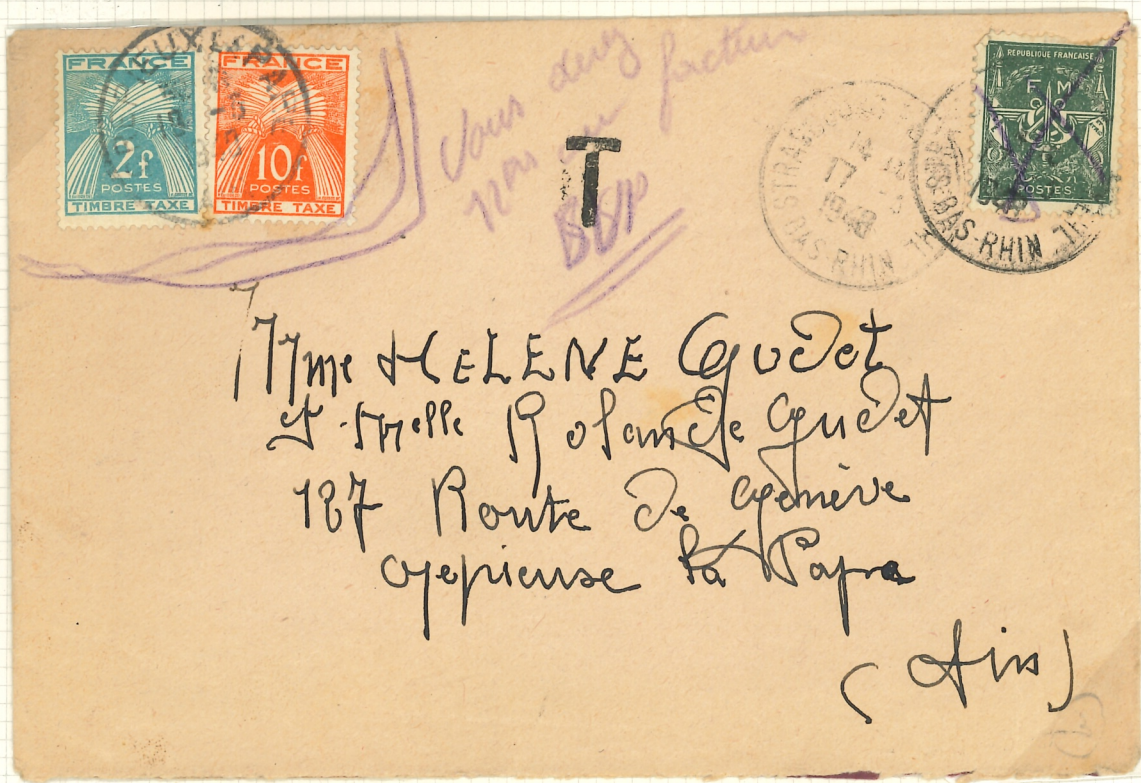 FRANCE
2f
POSTES
TIMBRE TAXE
FRANCE
10f
POSTES
TIMBRE TAXE
Vous devez
non au facteur
T
STRASBOURG
17
1948
BAS-RHIN
REPUBLIQUE FRANCAISE
F M
POSTES
1948
BAS-RHIN
Mme HELENE Gudet
et Melle Rolande Gudet
187 Route de Genève
La Pape
(Ain)